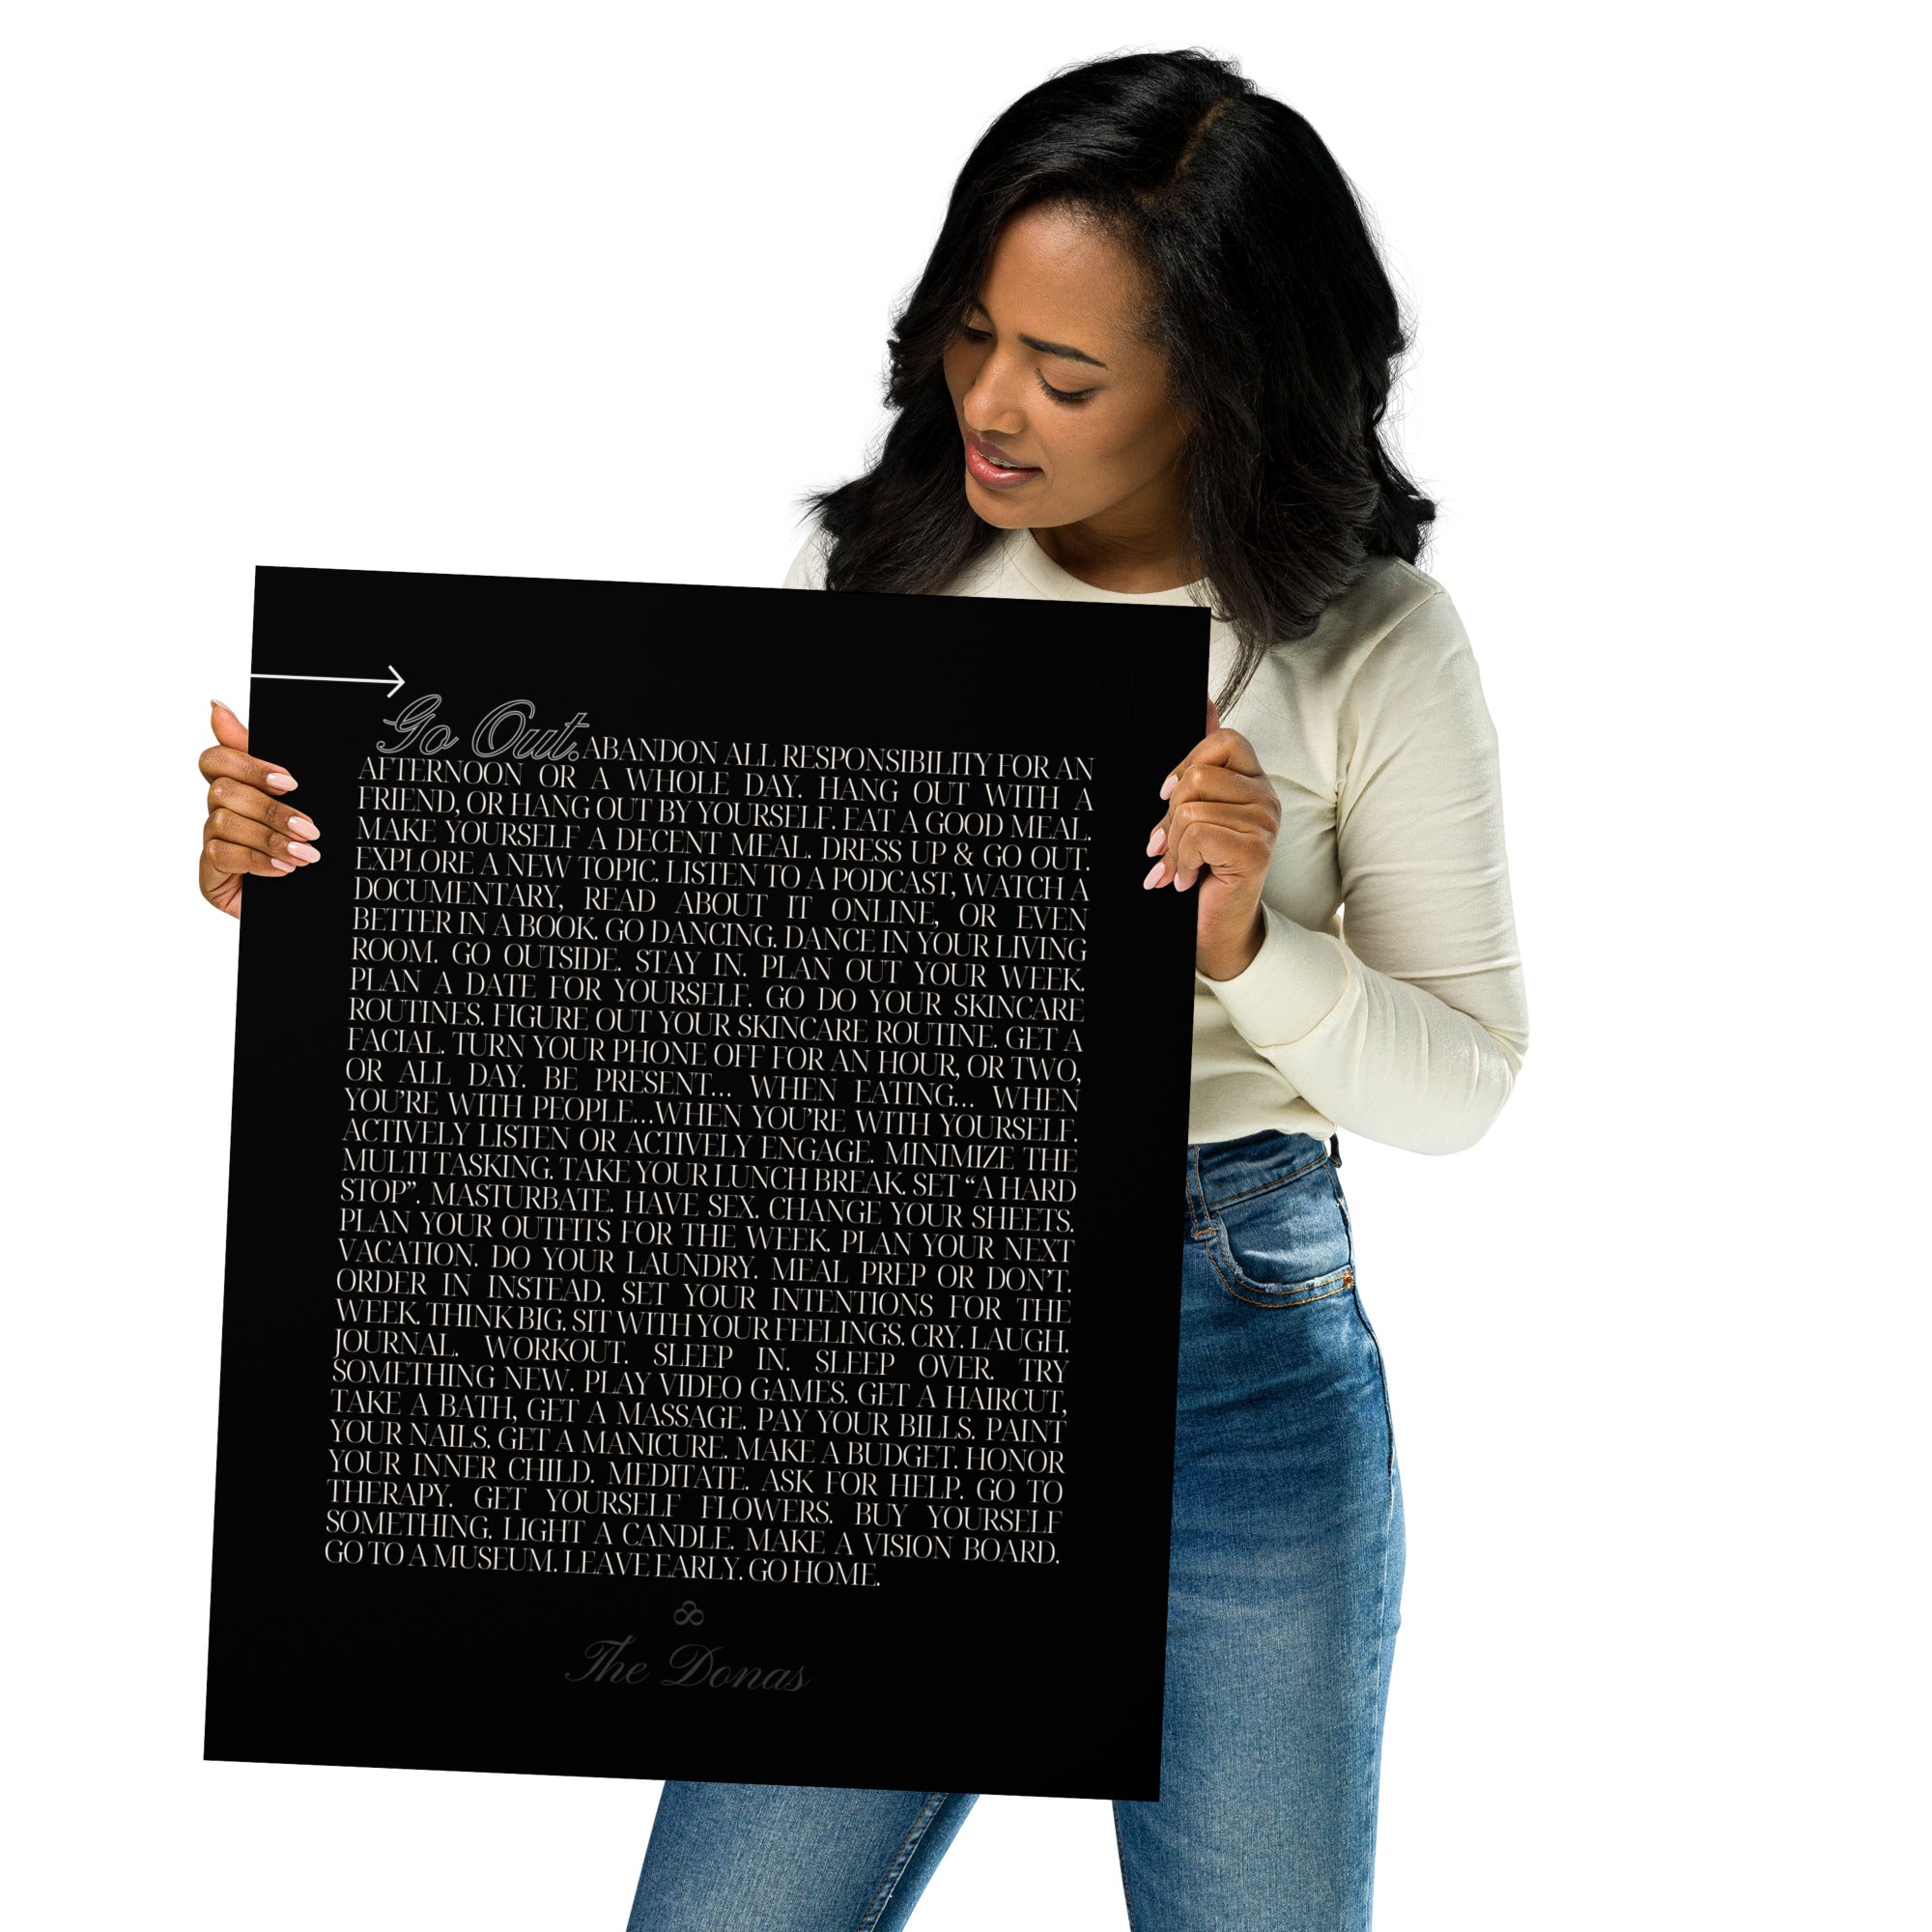 Go Out. ABANDON ALL RESPONSIBILITY FOR AN
AFTERNOON OR A WHOLE DAY. HANG OUT WITH A
FRIEND, OR HANG OUT BY YOURSELF. EAT A GOOD MEAL.
MAKE YOURSELF A DECENT MEAL. DRESS UP & GO OUT.
EXPLORE A NEW TOPIC. LISTEN TO A PODCAST, WATCH A
DOCUMENTARY, READ ABOUT IT ONLINE, OR EVEN
BETTER IN A BOOK. GO DANCING. DANCE IN YOUR LIVING
ROOM. GO OUTSIDE. STAY IN. PLAN OUT YOUR WEEK.
PLAN A DATE FOR YOURSELF. GO DO YOUR SKINCARE
ROUTINES. FIGURE OUT YOUR SKINCARE ROUTINE. GET A
FACIAL. TURN YOUR PHONE OFF FOR AN HOUR, OR TWO,
OR ALL DAY. BE PRESENT... WHEN EATING... WHEN
YOU'RE WITH PEOPLE...WHEN YOU'RE WITH YOURSELF.
ACTIVELY LISTEN OR ACTIVELY ENGAGE. MINIMIZE THE
MULTI TASKING. TAKE YOUR LUNCH BREAK. SET “A HARD
STOP”. MASTURBATE. HAVE SEX. CHANGE YOUR SHEETS.
PLAN YOUR OUTFITS FOR THE WEEK. PLAN YOUR NEXT
VACATION. DO YOUR LAUNDRY. MEAL PREP OR DON'T.
ORDER IN INSTEAD. SET YOUR INTENTIONS FOR THE
WEEK. THINK BIG. SIT WITH YOUR FEELINGS. CRY. LAUGH.
JOURNAL. WORKOUT. SLEEP IN. SLEEP OVER. TRY
SOMETHING NEW. PLAY VIDEO GAMES. GET A HAIRCUT,
TAKE A BATH, GET A MASSAGE. PAY YOUR BILLS. PAINT
YOUR NAILS. GET A MANICURE. MAKE A BUDGET. HONOR
YOUR INNER CHILD. MEDITATE. ASK FOR HELP. GO TO
THERAPY. GET YOURSELF FLOWERS. BUY YOURSELF
SOMETHING. LIGHT A CANDLE. MAKE A VISION BOARD.
GO TO A MUSEUM. LEAVE EARLY. GO HOME.
The Donas